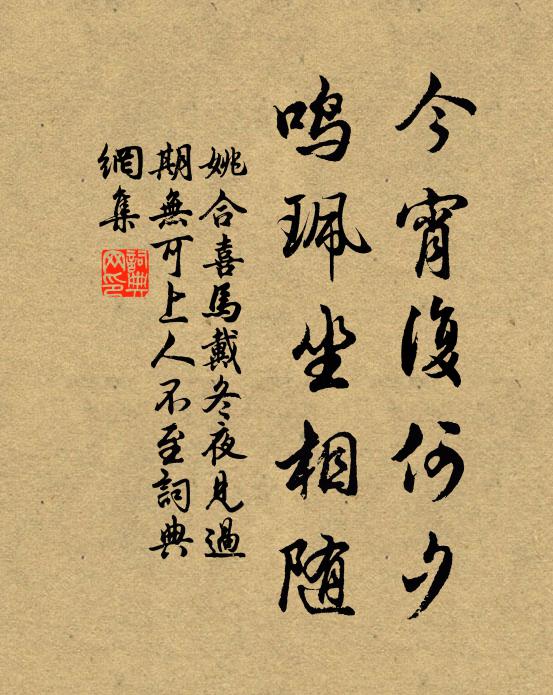 今宵復何夕
鳴珮坐相随
姚合喜馬戴冬夜見過
期無可上人不至詞典
網集
詞典
网印